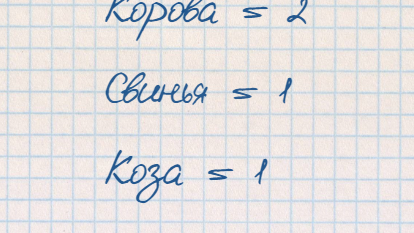 Корова = 2
Свинья = 1
Коза = 1